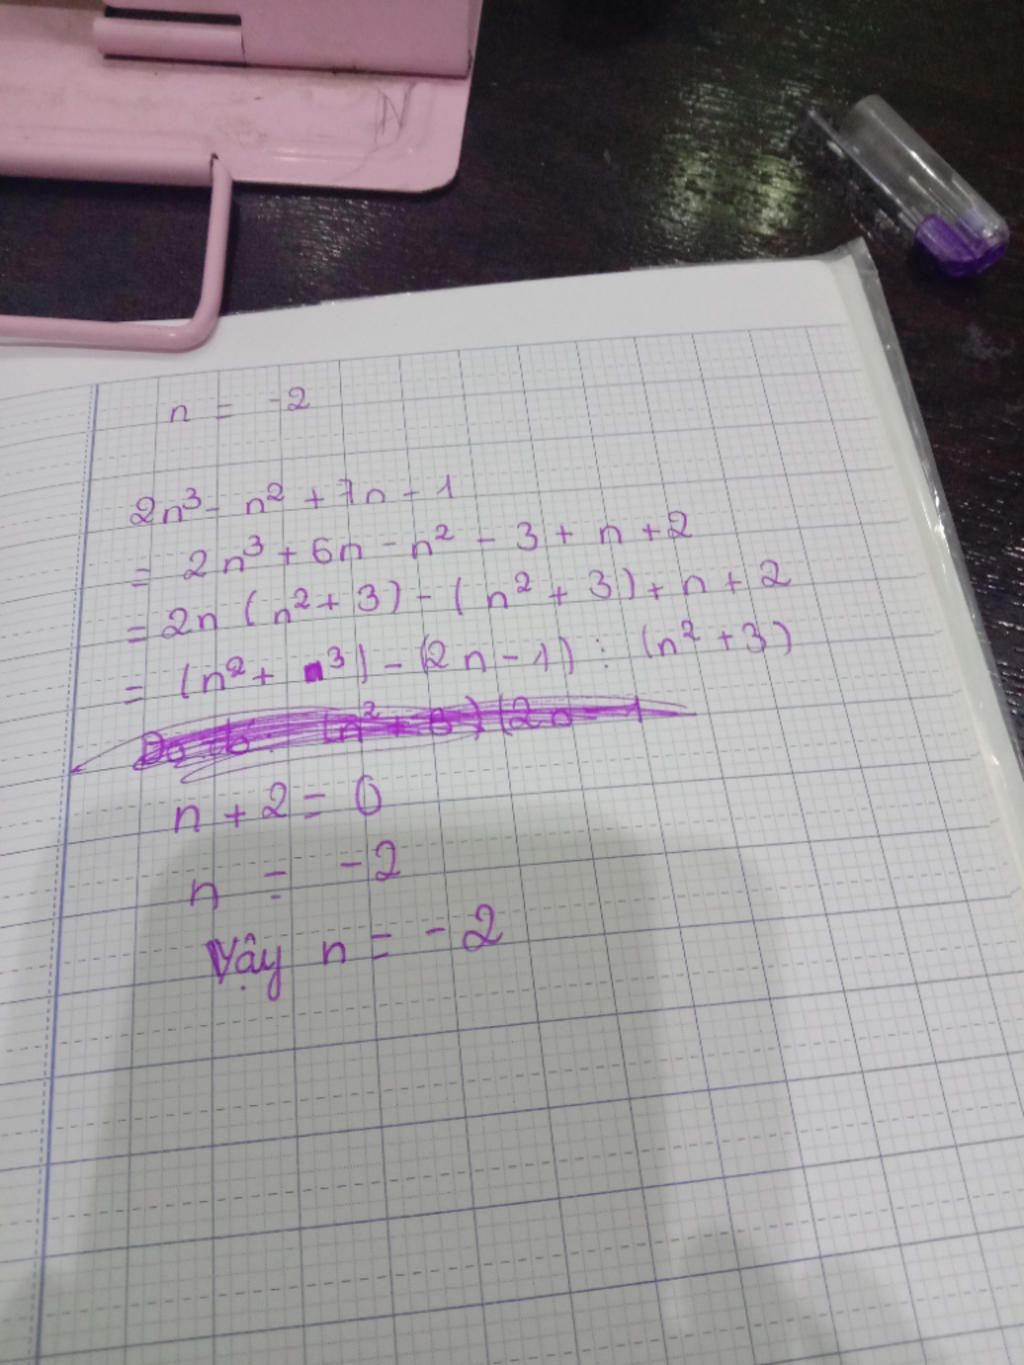 n = -2
2n³ - n² + 7n - 1
= 2n³ + 6n - n² - 3 + n + 2
= 2n (n² + 3) - (n² + 3) + n + 2
= (n² + 3) - (2n - 1) : (n² + 3)
n + 2 = 0
n = -2
Vậy n = -2